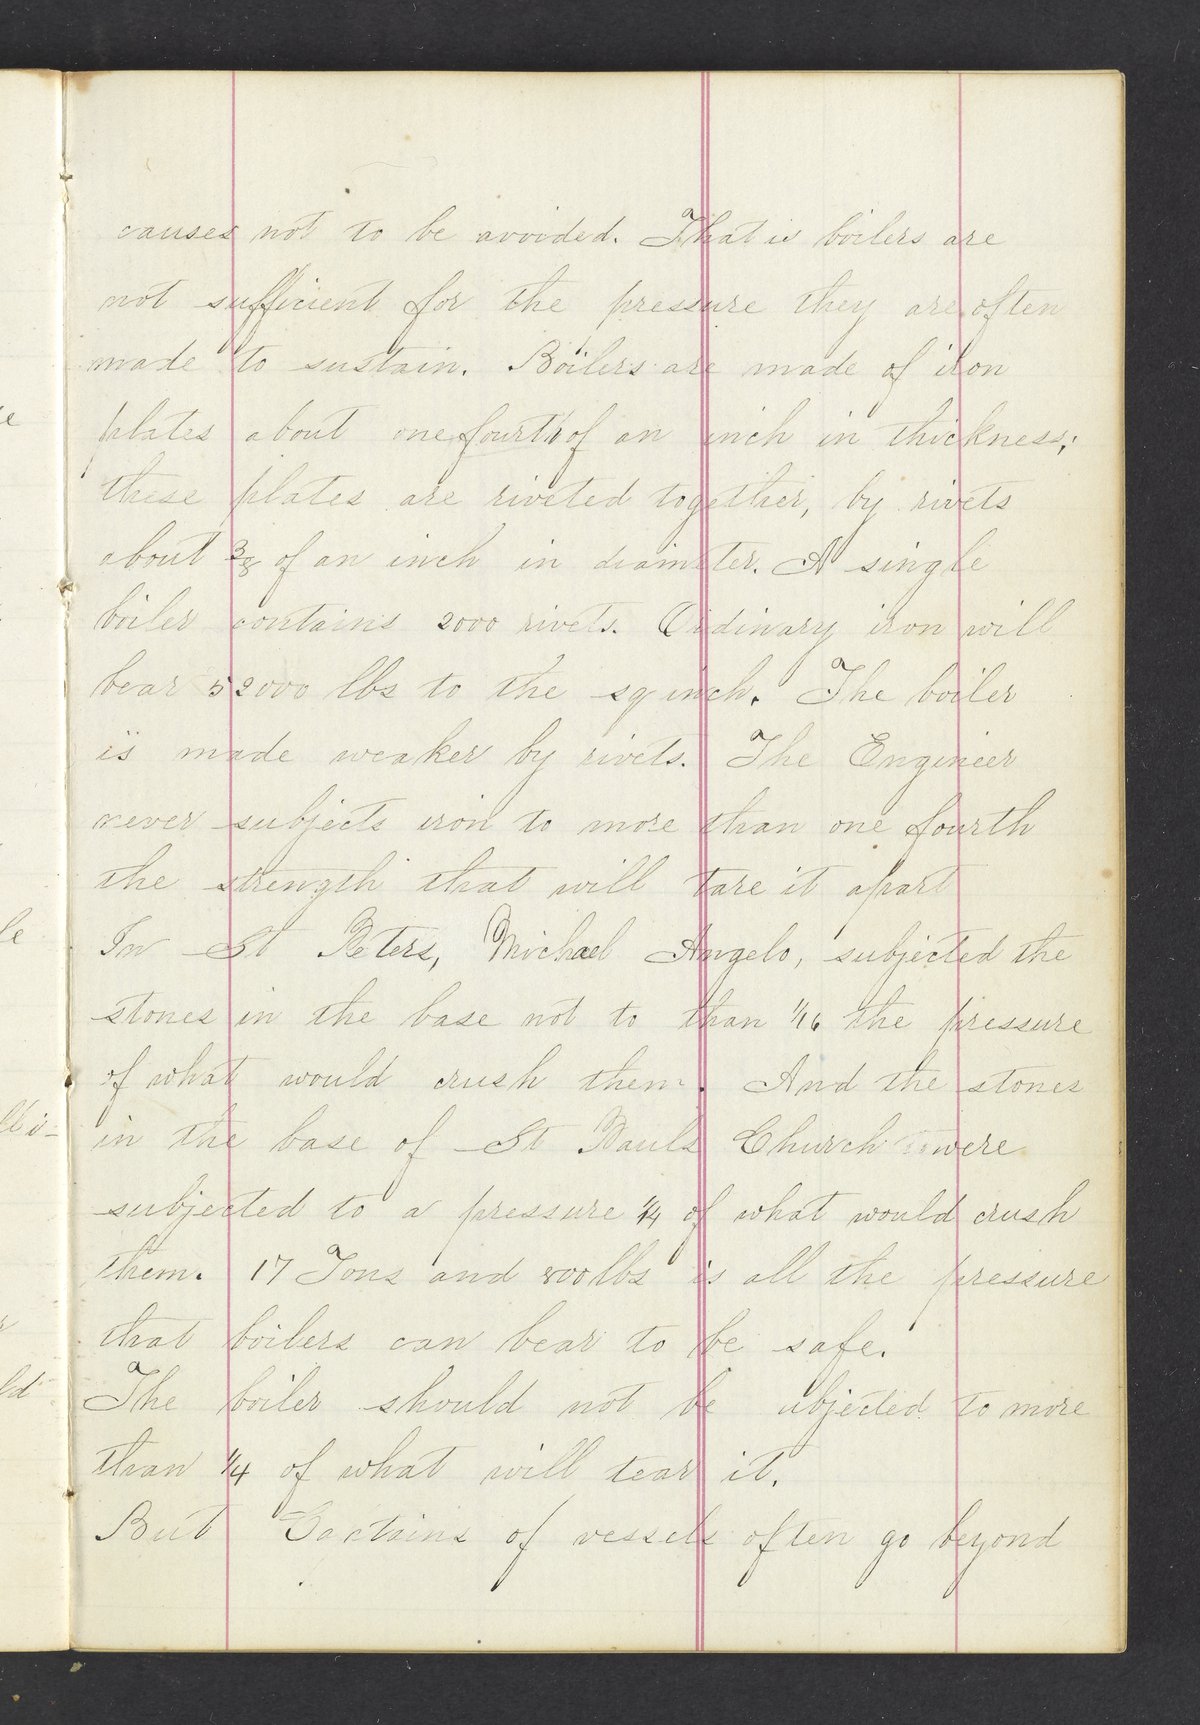 causes not to be avoided. That is boilers are
not sufficient for the pressure they are often
made to sustain. Boilers are made of iron
plates about one fourth of an inch in thickness;
these plates are riveted together, by rivets
about 3/8 of an inch in diameter. A single
boiler contains 2000 rivets. Ordinary iron will
bear 52000 lbs to the sq inch. The boiler
is made weaker by rivets. The Engineer
never subjects iron to more than one fourth
the strength that will tare it apart
In St Peters, Michael Angelo, subjected the
stones in the base not to than 1/16 the pressure
of what would crush them. And the stones
in the base of St Pauls Church were
subjected to a pressure 1/4 of what would crush
them. 17 Tons and 800 lbs is all the pressure
that boilers can bear to be safe.
The boiler should not be ubjected to more
than 1/4 of what will tear it.
But of vessels often go beyond
le
ld